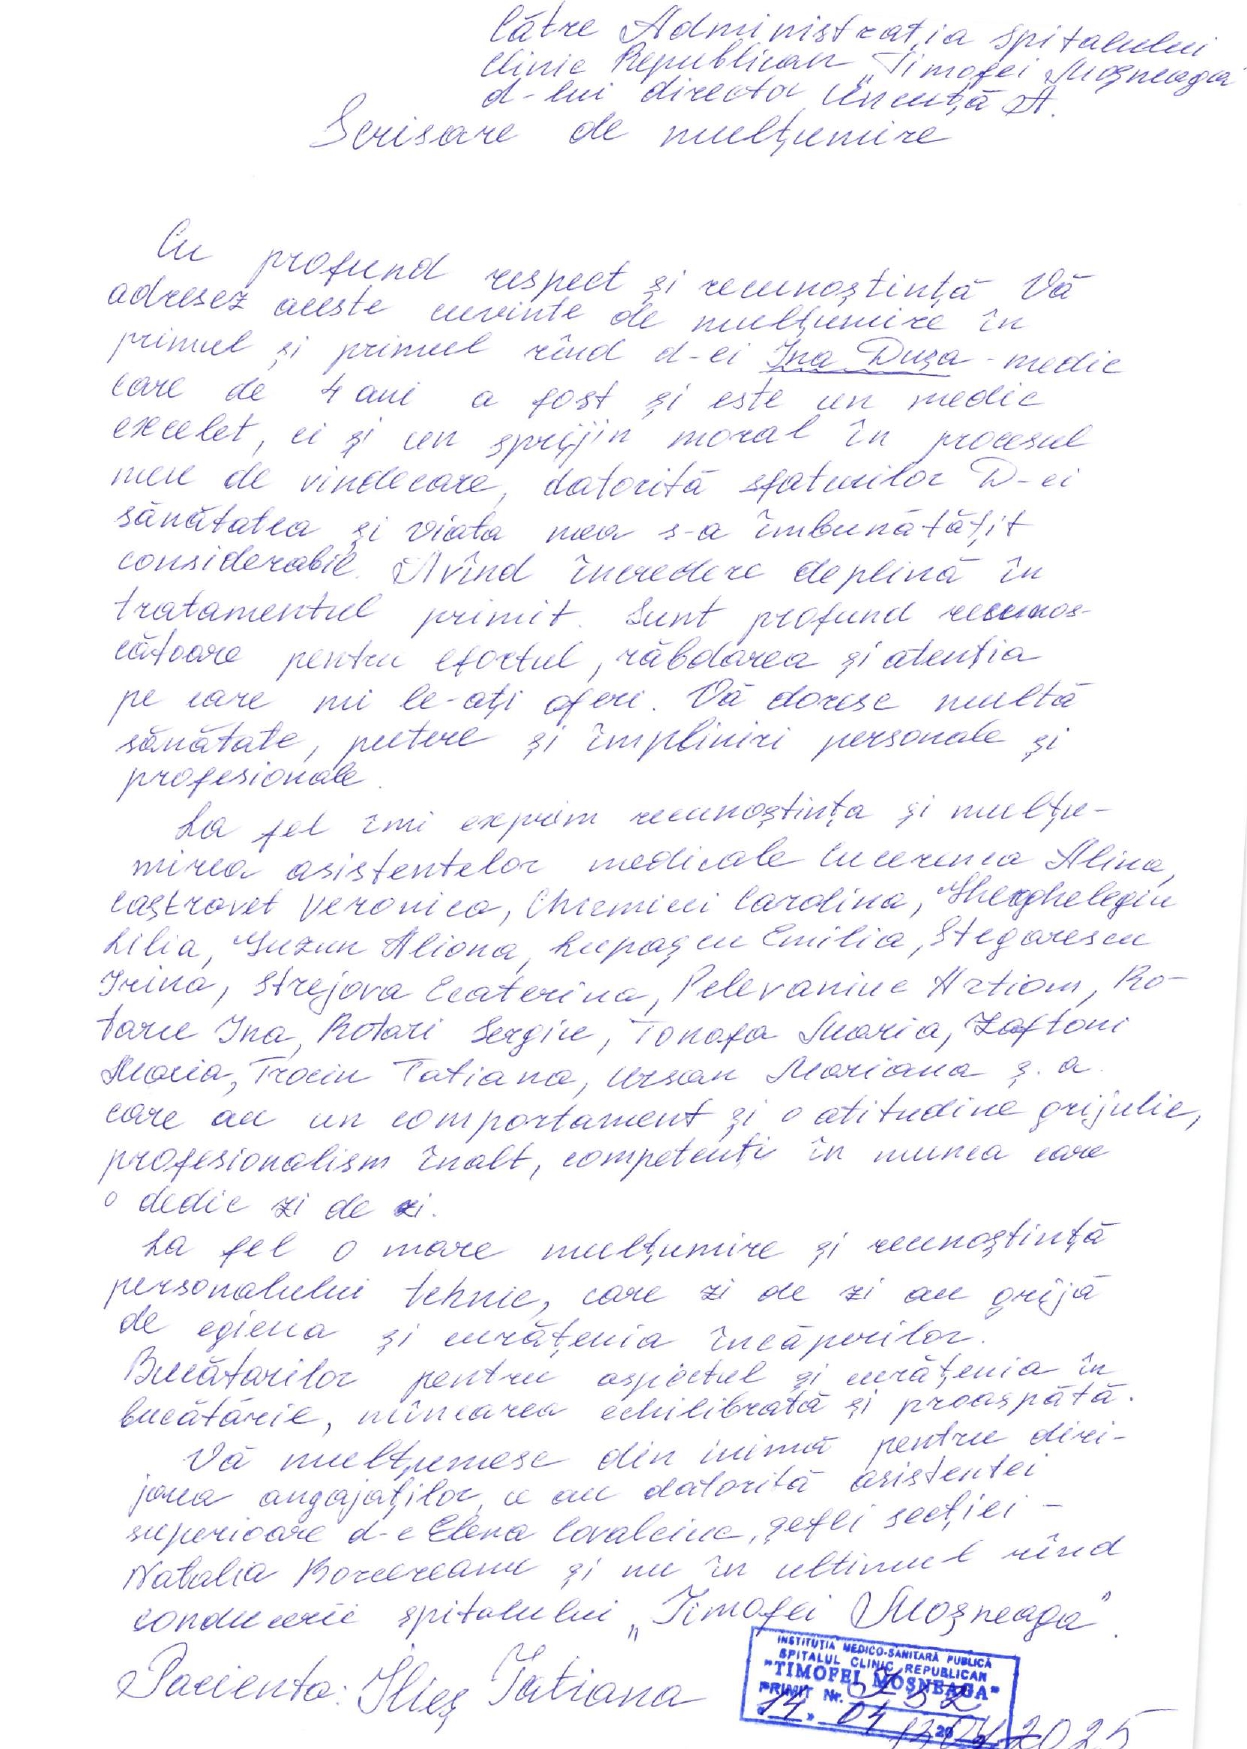 Către Administrația spitalului
Clinic Republican „Timofei Moșneaga
d-lui directa Uncuță A.
Scrisoare de mulțumire
Cu profund respect și recunoștință Vă
adresez aceste cuvinte de mulțumire în
primul și primul rînd d-ei Ina Dușa - medic
care de 4 ani a fost și este un medic
excelet, ci și un sprijin moral în procesul
meu de vindecare, datorită sfaturilor D-ei
sănătatea și viata mea s-a îmbunătățit
considerabil. Avînd încredere deplină în
tratamentul primit. Sunt profund recunos-
cătoare pentru efortul, răbdarea și atenția
pe care mi le-ați oferi. Vă doresc multă
sănătate, putere și împliniri personale și
profesionale.
La fel îmi exprim recunoștința și mulțu-
mirea asistentelor medicale Alina,
Castraveț Veronica, Carolina, Gherghelegiu
Lilia, Guzun Aliona, Lupașcu Emilia, Stegarescu
Irina, Strejova Ecaterina, Artiom, Ro-
taru Ina, Rotari Sergiu, Maria, Zaftoni
Maria, Trocin Tatiana, Ursan Mariana ș.a.
care au un comportament și o atitudine grijulie,
profesionalism înalt, competenți în munca care
o dedic zi de zi.
La fel o mare mulțumire și recunoștință
personalului tehnic, care zi de zi au grijă
de egiena și curățenia încăperilor.
Bucătarilor pentru aspectul și curățenia în
bucătărie, mîncarea echilibrată și proaspătă.
Vă mulțumesc din inimă pentru diri-
jarea angajaților, ce au datorită asistentei
superioare d-e Elena Covalciuc, șefei secției -
Natalia și nu în ultimul rînd
conducerii spitalului „Timofei Moșneaga".
Pacienta: Ilieș Tatiana
INSTITUȚIA MEDICO-SANITARĂ PUBLICĂ
SPITALUL CLINIC REPUBLICAN
"TIMOFEI MOȘNEAGA"
PRIMIT Nr.
14 » 04 20
2025